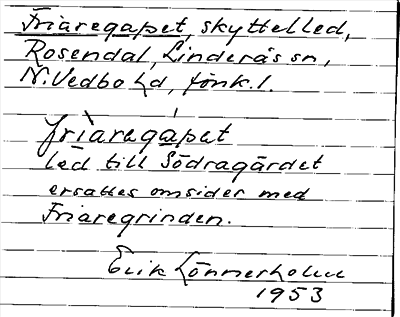 Friaregapet, skyttelled,
Rosendal, Linderås sn,
N. Vedbo hd, Jönk. l.
friaregapet
led till Södragärdet
ersattes omsider med
Friaregrinden.
Erik Lönnerholm
1953